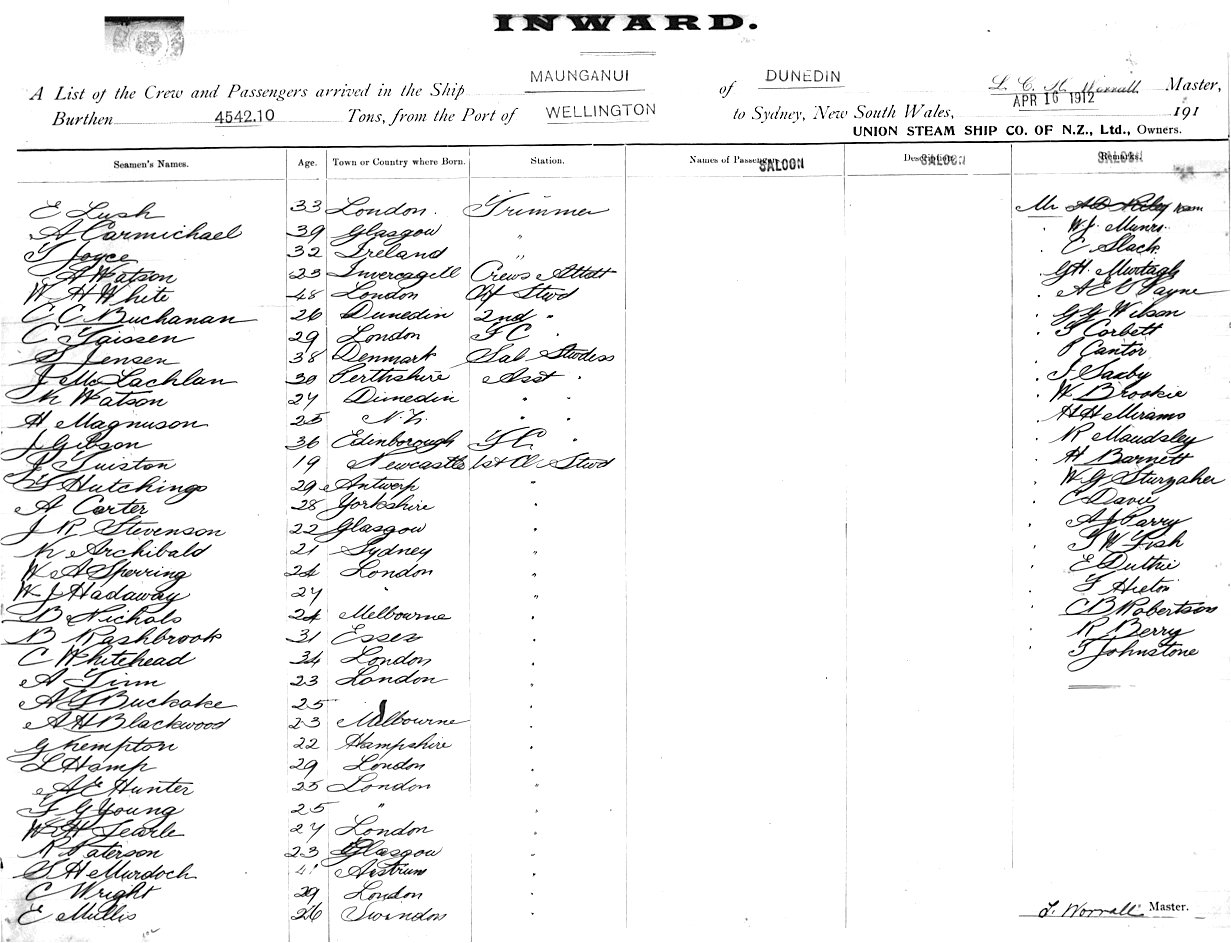 INWARD.
A List of the Crew and Passengers arrived in the Ship MAUNGANUI of DUNEDIN Worrall Master,
Burthen 4542.10 Tons, from the Port of WELLINGTON to Sydney, New South Wales, APR 16 1912 191
UNION STEAM SHIP CO. OF N.Z., Ltd., Owners.
Seamen's Names. Age. Town or Country where Born. Station. Names of Passengers SALOON Description SALOON Remarks. SALOON
E Lush 33 London. Trimmer Mr
A Carmichael 39 Glasgow " W J Munro
T Joyce 32 Ireland " E Slack
A Watson 23 Invercagell Crews Attdt G H Murtagh
W H White 48 London Chf Stwd A E G Payne
C C Buchanan 26 Dunedin 2nd " G G Wilson
C Taissen 29 London F C " T Corbett
S Jensen 38 Denmark Sal Stwdess P Cantor
J McLachlan 30 Perthshire Asst " J Saxby
N Watson 27 Dunedin " " W Brookie
H Magnuson 25 N.Z. " " H H Mirams
J Gibson 36 Edinborough F C " R Maudsley
J Tuiston 19 Newcastle 1st Cl Stwd H Barnett
F Hutchings 29 Antwerp " W G Sturzaker
A Carter 28 Yorkshire " C Davie
J R Stevenson 22 Glasgow " A J Parry
N Archibald 21 Sydney " T W Fish
W A Sperring 24 London " E Duthie
W J Hadaway 27 " " F Hieton
B Nichols 24 Melbourne " C B Robertson
B Rashbrook 31 Essex " R Berry
C Whitehead 34 London " T Johnstone
A Finn 23 London "
A G Buckoke 25 "
A H Blackwood 23 Melbourne "
G Kempton 22 Hampshire "
L Hamp 29 London "
A E Hunter 25 London "
F G Young 25 " "
W H Searle 27 London "
R Paterson 23 Glasgow "
S H Murdoch 41 "
C Wright 29 London "
E Mullis 26 Swindon "
Worrall Master.